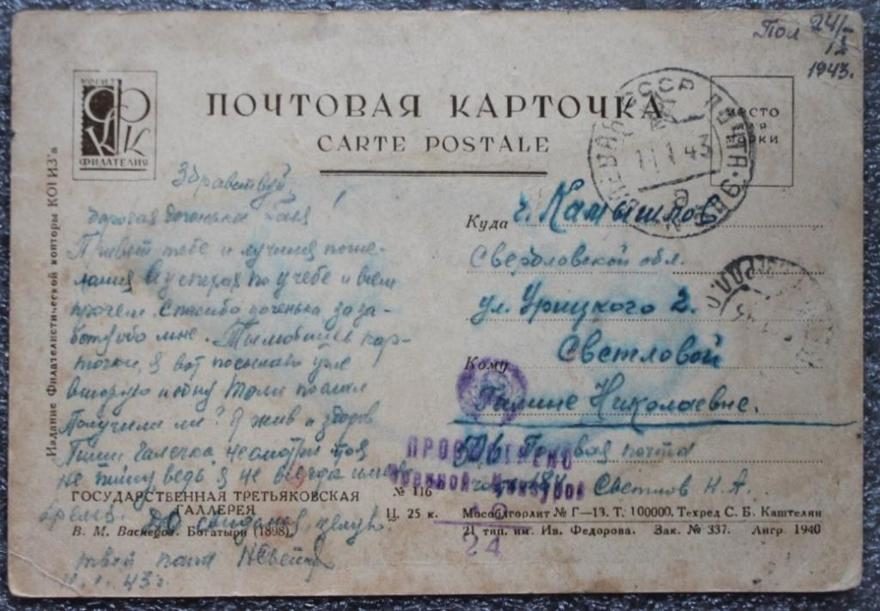 Пол 24/I
1943.
КОГИЗ
СФКК
ФИЛАТЕЛИЯ
ПОЧТОВАЯ КАРТОЧКА
CARTE POSTALE
МЕСТО
ДЛЯ
МАРКИ
СССР ПОЧТА
11 1 43
Издание Филателистической конторы КОГИЗ'а
Здравствуй
дорогая доченька Галя!
Привет тебе и лучшие поже-
лания успеха по учебе и всем
прочем. Спасибо доченька за за-
боту обо мне. Ты любишь кар-
точки, я вот посылаю уже
вторую и одну Толи послал
Получили ли? Я жив и здоров
Пиши Галочка, несмотря что я
не пишу ведь я не всегда имею
время. До свиданья, целую.
твой папа
11.1.43 г.
Куда г. Камышлов
Свердловской обл.
ул. Урицкого 2.
Кому Светловой
Галине Николаевне.
Полевая почта
Светлов Н. А.
ПРОСМОТРЕНО
Военной Цензурой
24
ГОСУДАРСТВЕННАЯ ТРЕТЬЯКОВСКАЯ
ГАЛЛЕРЕЯ
В. М. Васнецов. Богатыри (1898).
№ 116
Ц. 25 к.
Мособлгорлит № Г—13. Т. 100000. Техред С. Б. Каштелян
21 тип. им. Ив. Федорова. Зак. № 337. Лнгр. 1940